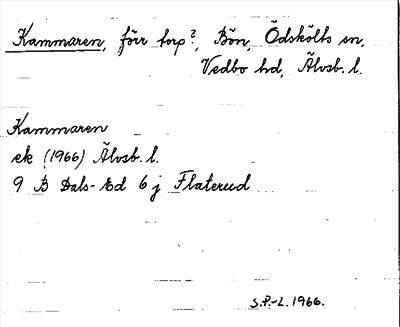 Kammaren, förr torp?, Bön, Ödskölts sn,
Vedbo hd, Älvsb. l.
Kammaren
ek (1966) Älvsb. l.
9 B Dals-Ed 6 j Flaterud
S.P.-L. 1966.